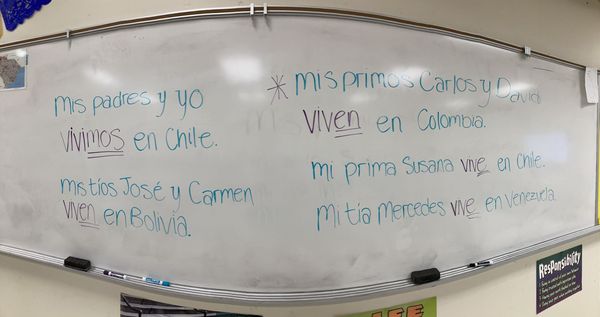 mis padres y yo
vivimos en Chile.
mis tíos José y Carmen
viven en Bolivia.
* mis primos Carlos y David
viven en Colombia.
mi prima Susana vive en Chile.
mi tía Mercedes vive en Venezuela.
Responsibility